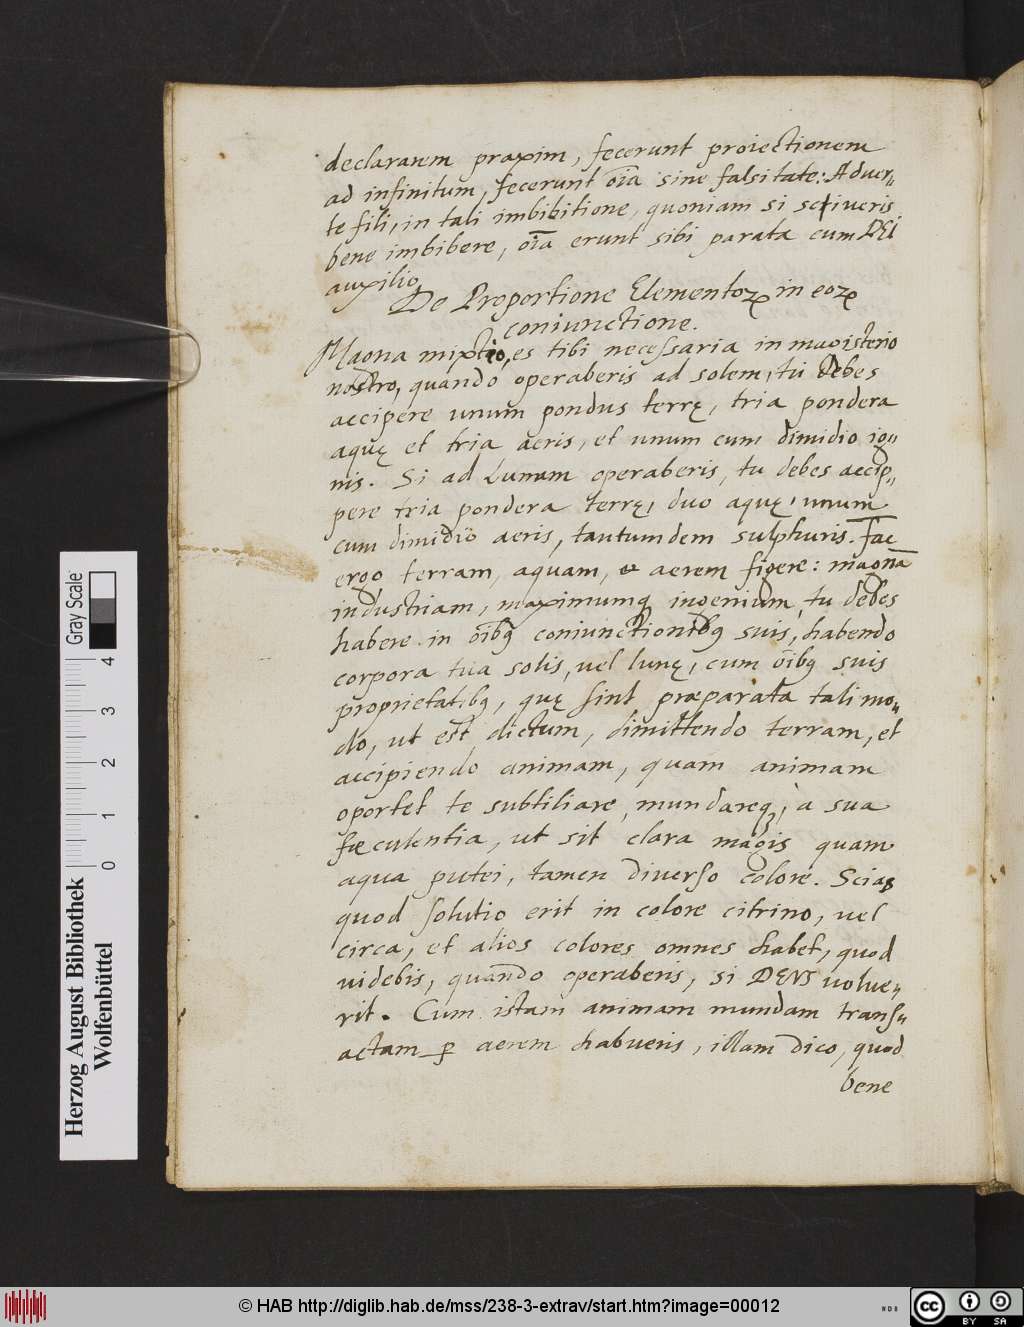 declararem praxim, fecerunt proiectionem
ad infinitum, fecerunt oīa sine falsitate: Aduer„
te fili, in tali imbibitione, quoniam si sciueris
bene imbibere, oīa erunt sibi parata cum DEI
auxilio.
De Proportione Elementoꝝ in eoꝝ
coniunctione.
Magna mixtio, es tibi necessaria in magisterio
nostro, quando operaberis ad solem, tu debes
accipere unum pondus terrę, tria pondera
aquę et tria aeris, et unum cum dimidio ig„
nis. Si ad Lunam operaberis, tu debes accip„
pere tria pondera terrę, duo aquę, unum
cum dimidio aeris, tantumdem sulphuris. Fac
ergo terram, aquam, et aerem figere: magnā
industriam, maximumq ingenium tu debes
habere in oībꝗ coniunctionibꝗ suis, habendo
corpora tua solis, vel lunę, cum oībꝗ suis
proprietatibꝗ, quę sint præparata tali mo„
do, ut est dictum, dimittendo terram, et
accipiendo animam, quam animam
oportet te subtiliare, mundareq, à sua
fæculentia, ut sit clara magis quam
aqua putei, tamen diuerso colore. Scias
quod solutio erit in colore citrino, vel
circa, et alios colores omnes habet, quod
uidebis, quando operaberis, si DEUS uolue„
rit. Cum istam animam mundam trans„
actam ꝑ aerem habueris, illam dico, quod
bene
Herzog August Bibliothek
Wolfenbüttel
0 1 2 3 4
Gray Scale
© HAB http://diglib.hab.de/mss/238-3-extrav/start.htm?image=00012
cc BY SA